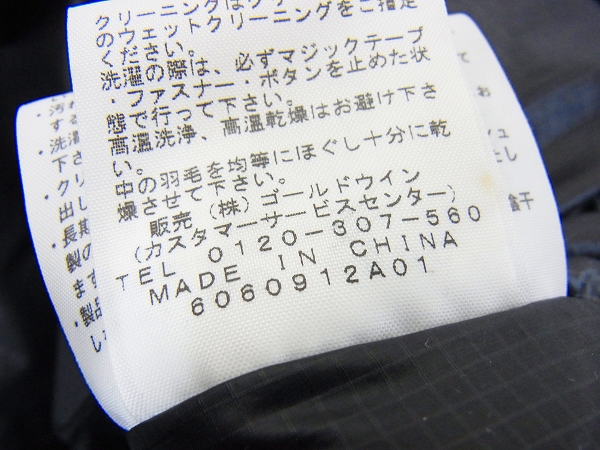 クリーニングは
のウェットクリーニングをご指定
ください。
洗濯の際は、必ずマジックテープ
・ファスナー・ボタンを止めた状
態で行って下さい。
高温洗浄、高温乾燥はお避け下さ
い。
中の羽毛を均等にほぐし十分に乾
燥させて下さい。
販売（株）ゴールドウイン
（カスタマーサービスセンター）
TEL 0120-307-560
MADE IN CHINA
6060912A01
する
・洗濯
下さ
・クリ
出し
・長期
製の
ます
・製品